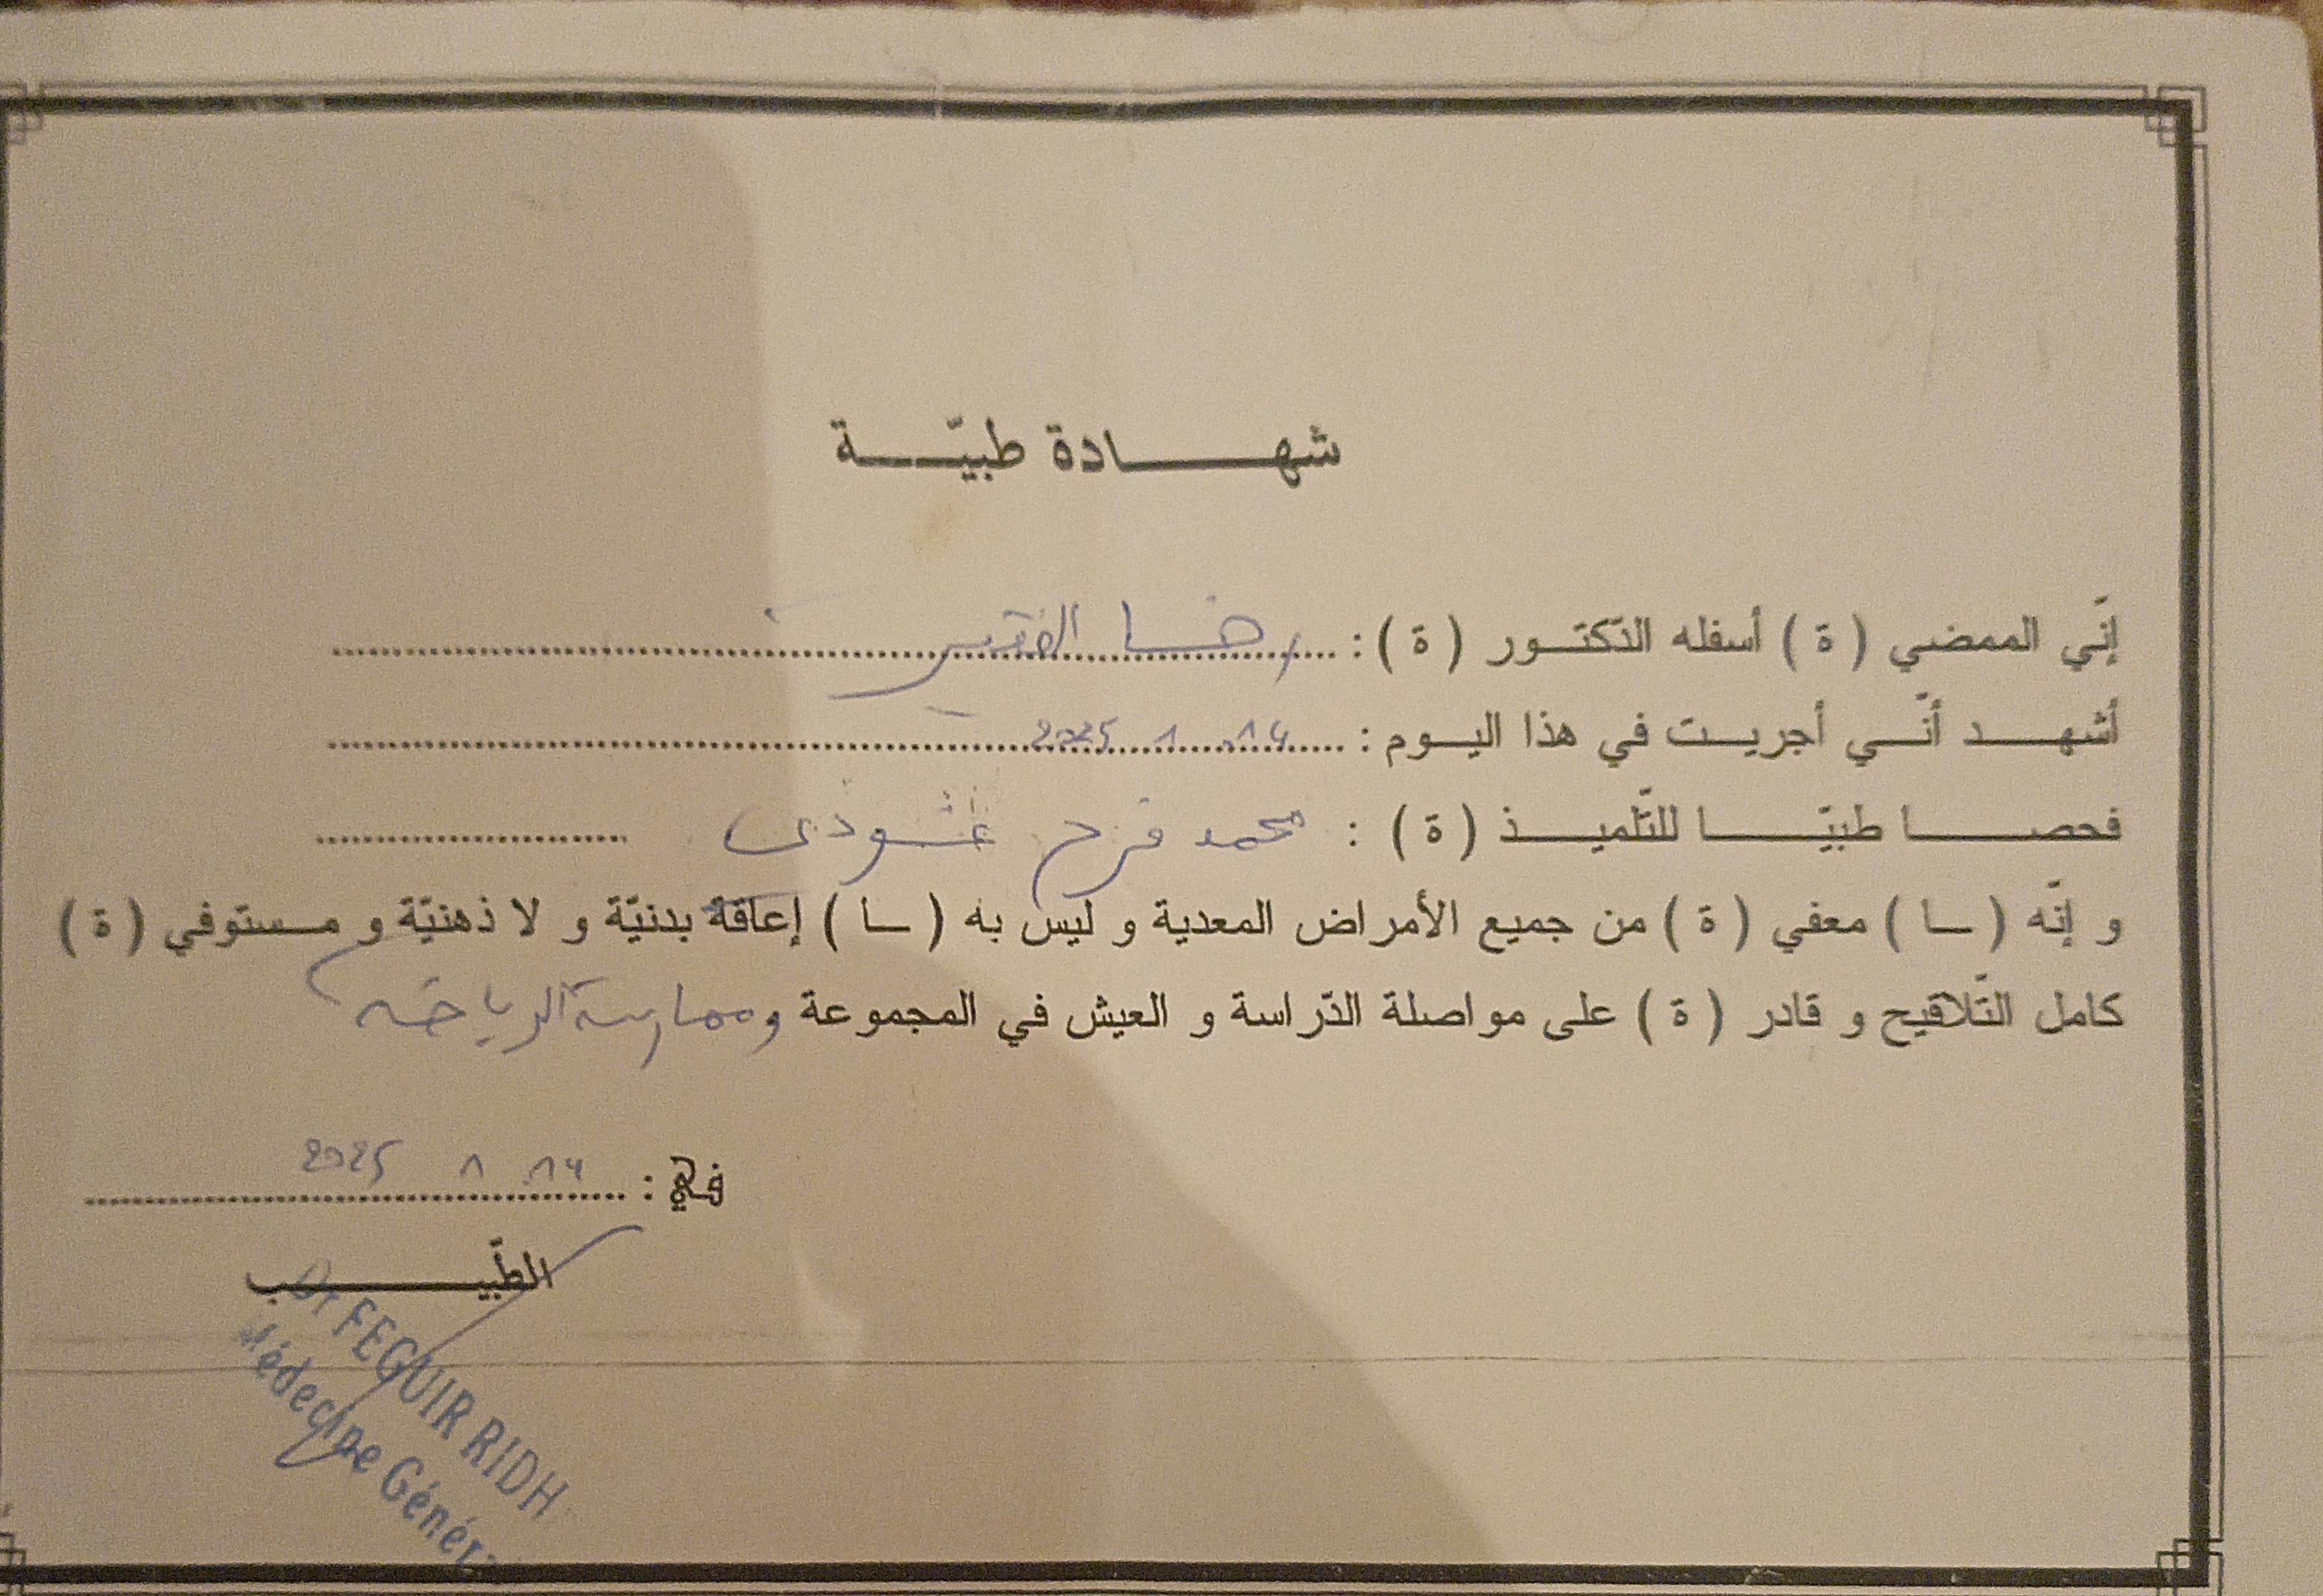 شهادة طبيّة
إنّي الممضي ( ة ) أسفله الدّكتور ( ة ) : رضا الفقير
أشهد أنّي أجريت في هذا اليوم : 14 1 2025
فحصا طبيّا للتّلميذ ( ة ) : محمد فرح
و إنّه ( ـا ) معفي ( ة ) من جميع الأمراض المعدية و ليس به ( ـا ) إعاقة بدنيّة و لا ذهنيّة و مستوفي ( ة )
كامل التّلاقيح و قادر ( ة ) على مواصلة الدّراسة و العيش في المجموعة وممارسة الرياضة
في : 14 1 2025
الطّبيب
Dr FEGUIR RIDH
Médecine Génér